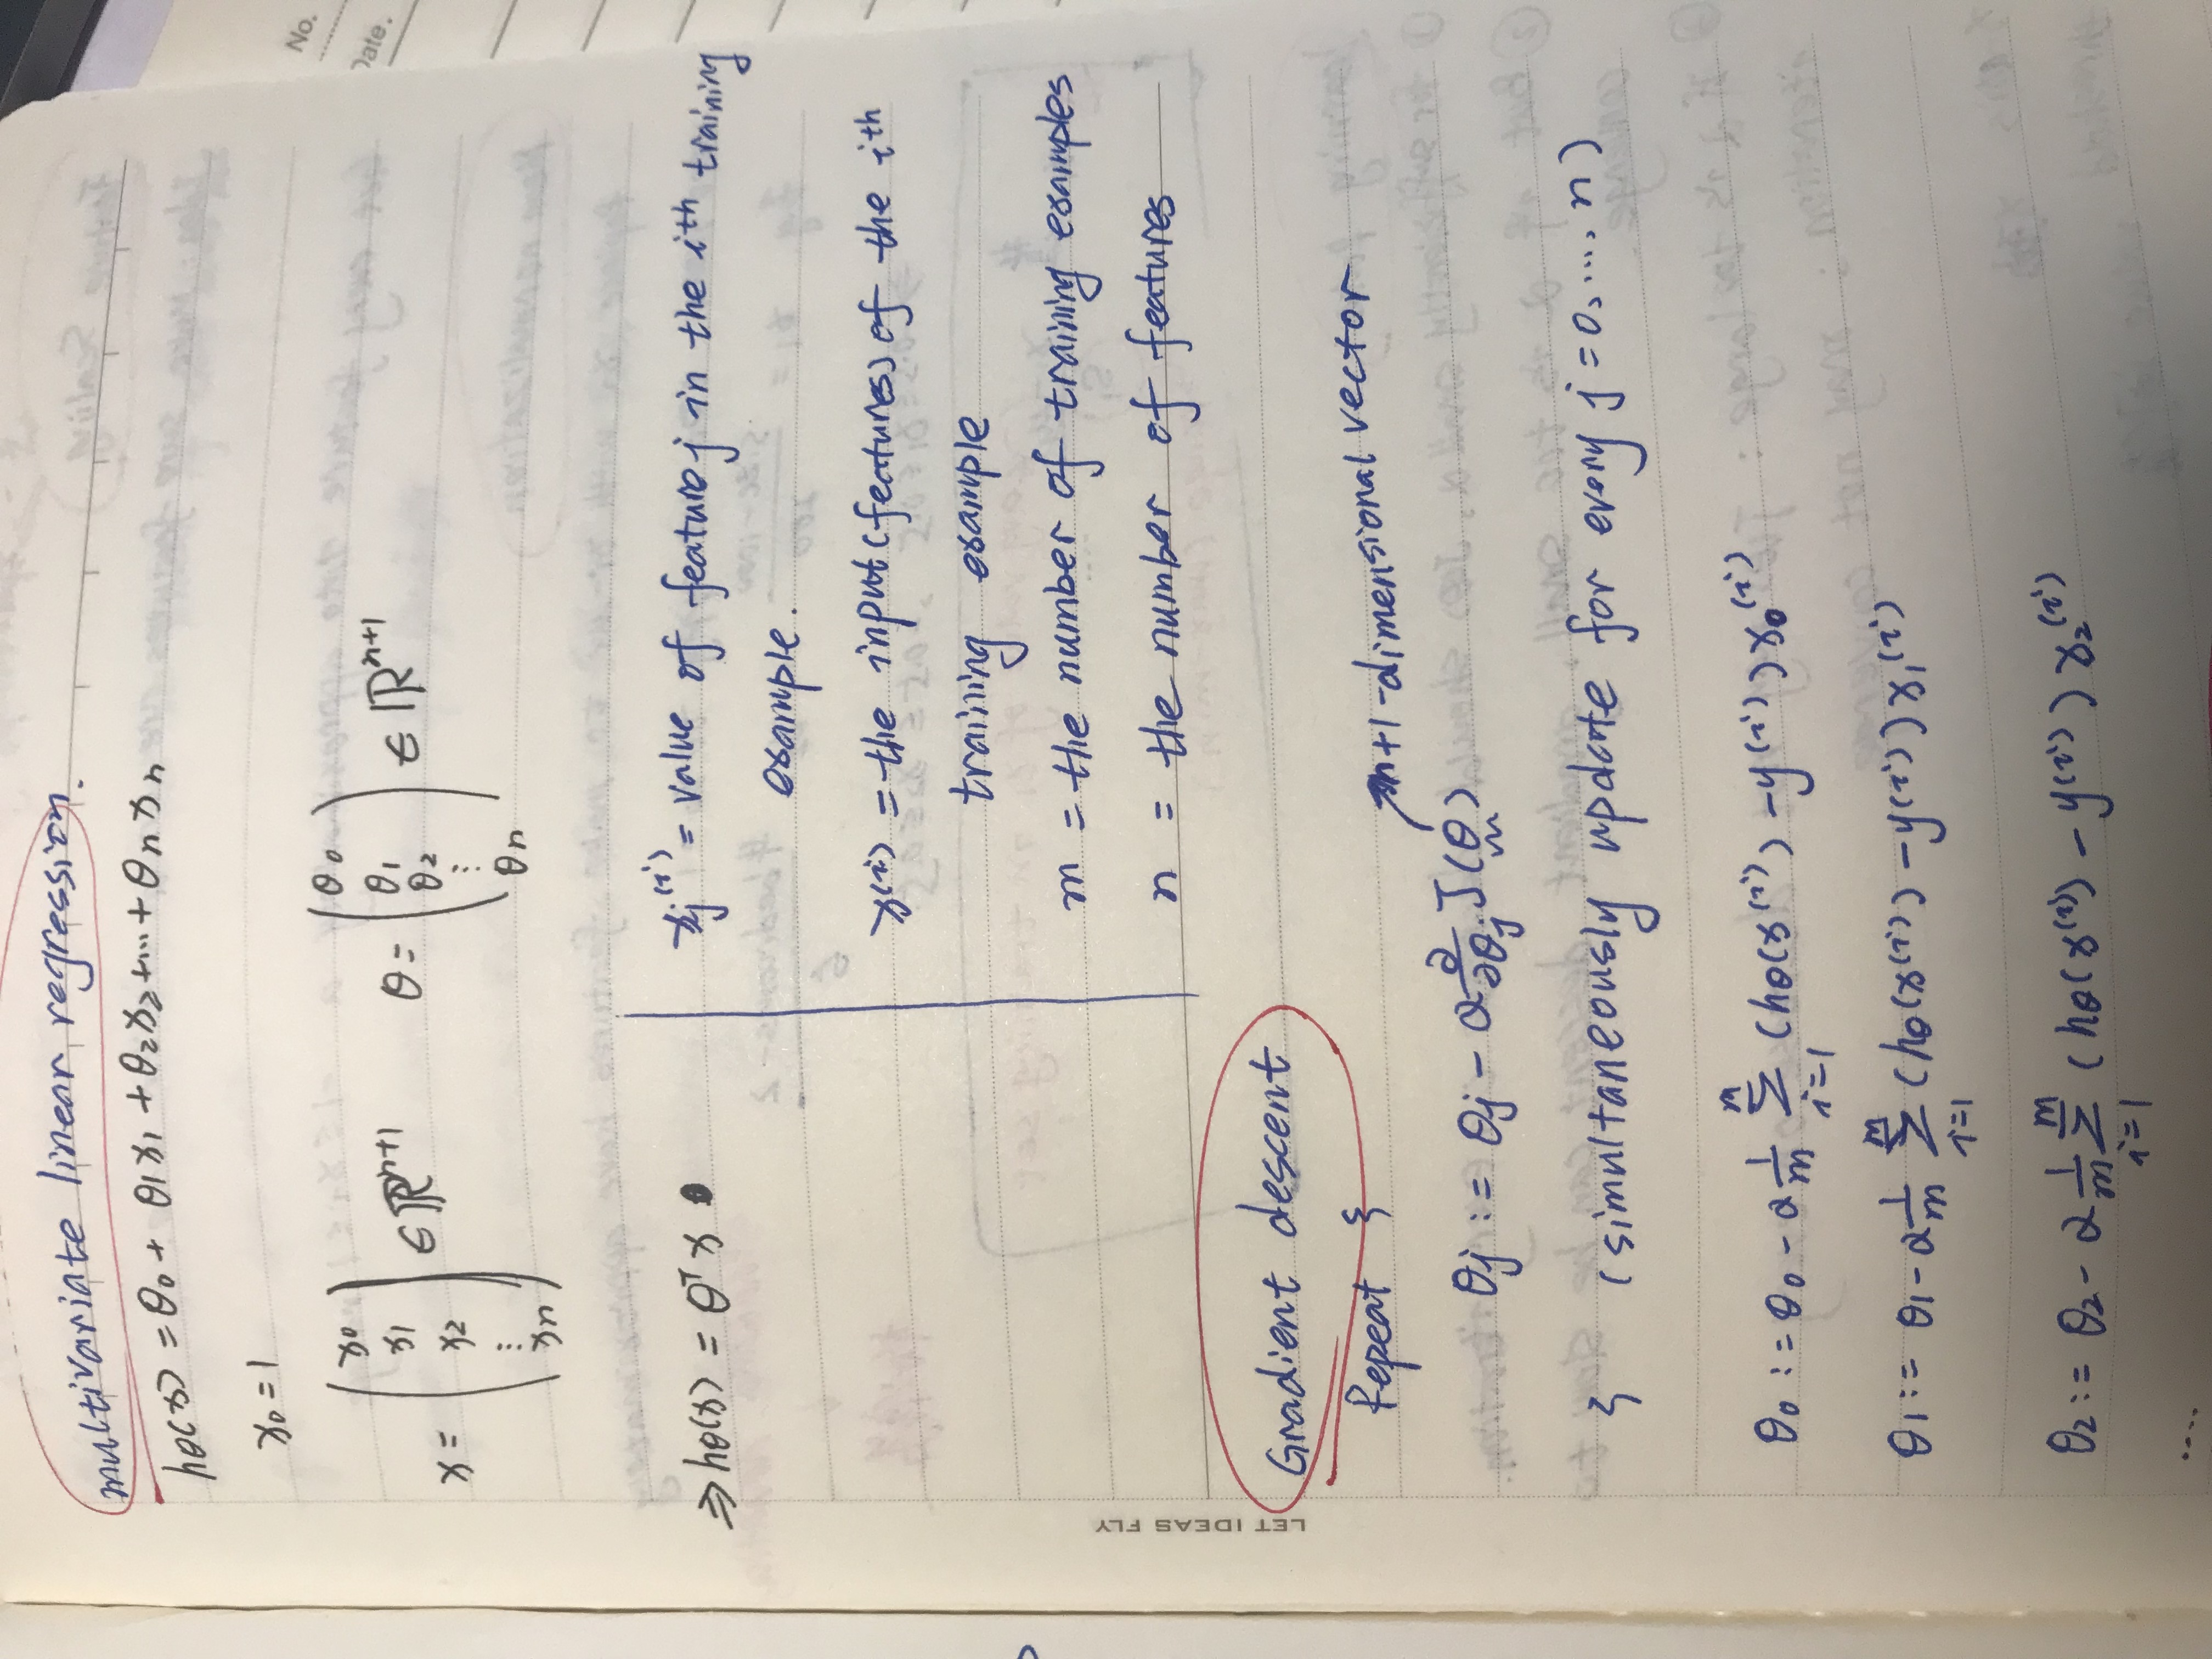 multivariate linear regression.
hθ(x) = θ0 + θ1x1 + θ2x2 + ... + θnxn
x0 = 1
x = (x0 x1 x2 ⋮ xn) ∈ ℝ^(n+1)    θ = (θ0 θ1 θ2 ⋮ θn) ∈ ℝ^(n+1)
⇒ hθ(x) = θ^T x
xj^(i) = value of feature j in the ith training
example.
x^(i) = the input (features) of the ith
training example
m = the number of training examples
n = the number of features
LET IDEAS FLY
Gradient descent
Repeat {
n+1-dimensional vector
θj := θj - α ∂/∂θj J(θ)
} (simultaneously update for every j = 0, ..., n)
θ0 := θ0 - α 1/m Σ_{i=1}^{m} (hθ(x^(i)) - y^(i)) x0^(i)
θ1 := θ1 - α 1/m Σ_{i=1}^{m} (hθ(x^(i)) - y^(i)) x1^(i)
θ2 := θ2 - α 1/m Σ_{i=1}^{m} (hθ(x^(i)) - y^(i)) x2^(i)
....
No.
Date.